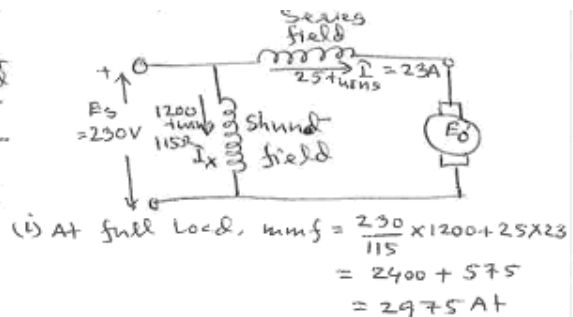 Series
field
25 turns I = 23A
+
Es
= 230V
1200
turns
115Ω
Ix
Shunt
field
E₀
(i) At full Load, mmf = 230/115 × 1200 + 25×23
= 2400 + 575
= 2975 At